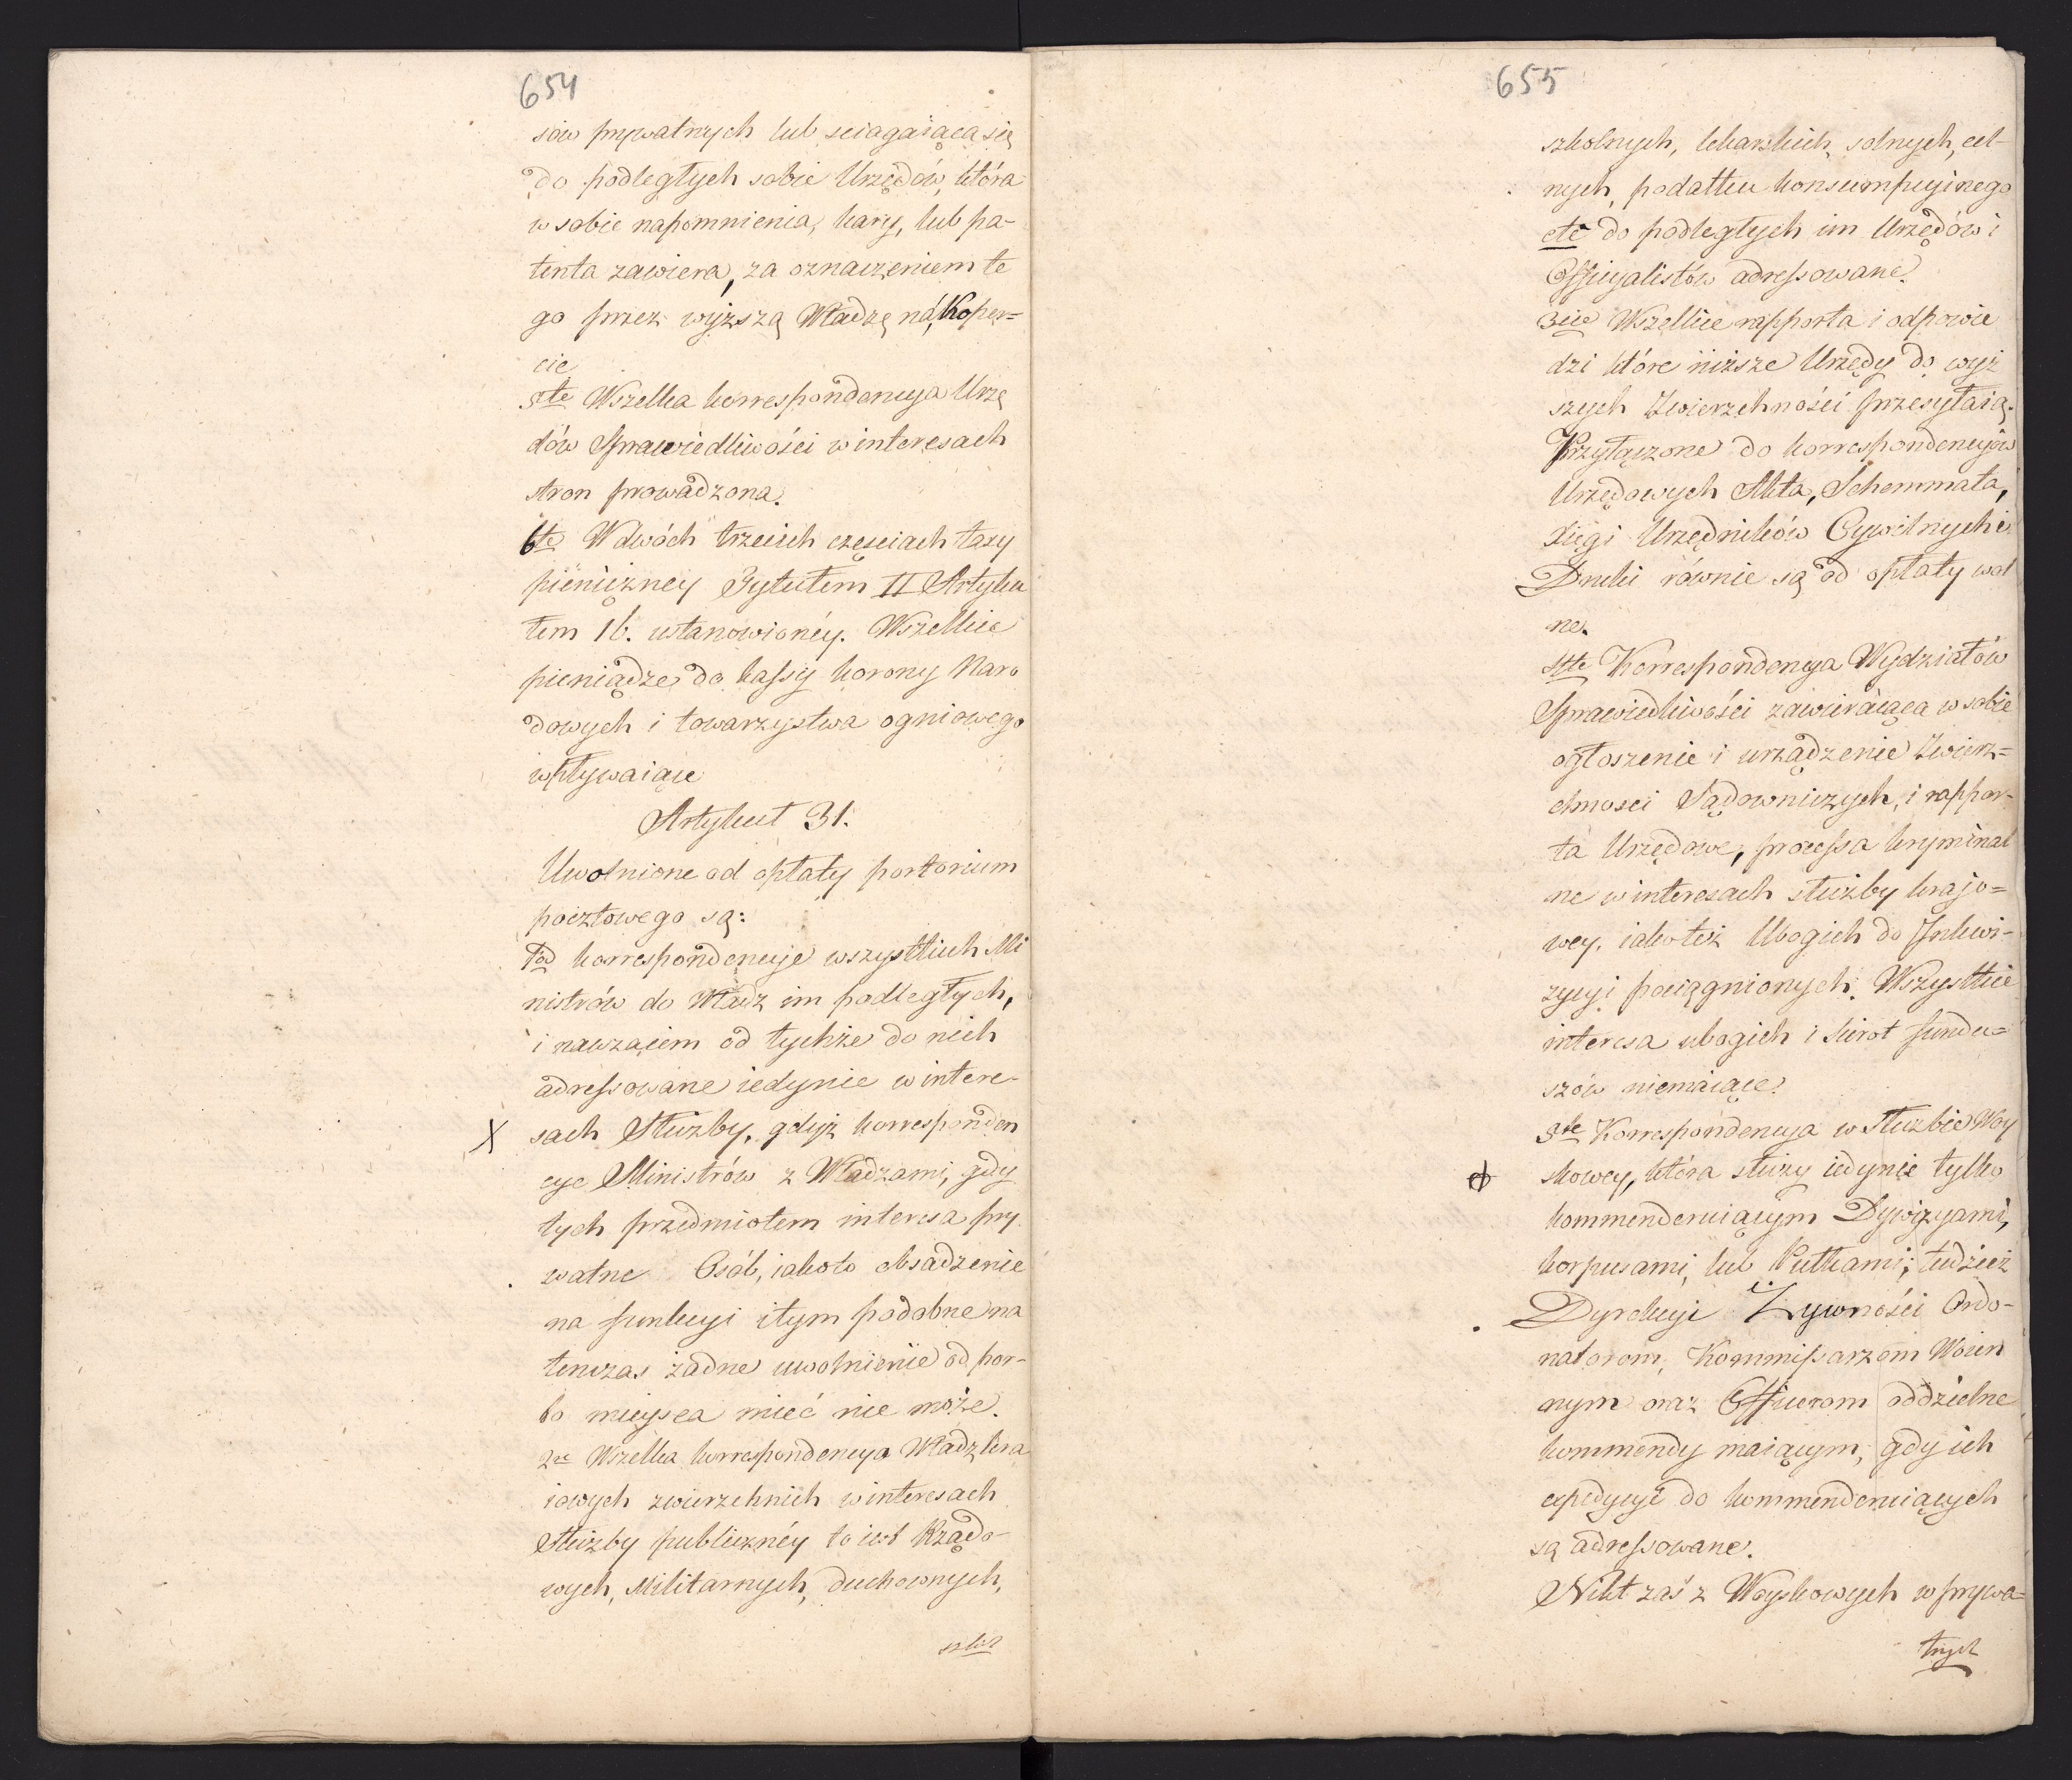 654
sów prywatnych lub sciagaiąca się
do podległych sobie Urzędów, która
w sobie napomnienia, kary, lub pa-
tenta zawiera, za oznaczeniem te
go przez wyższą Władzę na Koper=
cie
5te Wszelka korrespondencya Urzę
dów Sprawiedliwości w interesach
stron prowadzona.
6te W dwóch trzecich częściach taxy
pieniężney Tytułem II Artyku
łem 16. ustanowionéy. Wszelkie
pieniądze do kassy korony Naro
dowych i towarzystwa ogniowego
wpływaiące
Artykuł 31.
Uwolnione od opłaty portorium
pocztowego są:
1od korrespondencye wszystkich Mi
nistrów do Władz im podległych,
i nawzaiem od tychże do nich
adressowane iedynie w intere-
X sach Służby, gdyż korresponden
cye Ministrów z Władzami, gdy
tych przedmiotem interesa pry
watne Osób, iakoto obsadzenie
na funkcyi i tym podobne na
tenczas żadne uwolnienie od por-
to mieysca mieć nie może.
2re Wszelka korrespondencya Władz kra
iowych zwierzchnich w interesach
Służby publicznéy to iest Rządo-
wych, Militarnych, duchownych,
szkol
655
szkolnych, lekarskich, solnych, cel-
nych, podatku konsumpcyinego
etc do podległych im Urzędów i
Officyalistów adressowane.
3cie Wszelkie rapporta i odpowie
dzi które niższe Urzędy do wyż
szych Zwierzchności przesyłaią.
Przyłączone do korrespondencyów
Urzędowych Akta, Schemmata,
Xięgi Urzędników Cywilnych i
Druki równie są od opłaty wol
ne.
4te Korrespondencya Wydziałów
Sprawiedliwości zawieraiąca w sobie
ogłoszenie i urządzenie Zwierz=
chnosci Sądowniczych, i rappor-
ta Urzędowe, processa kryminal
ne w interesach służby krajo=
wey, iakoteż Ubogich do Inkwi-
zycyi pociągnionych. Wszystkie
interesa ubogich i sierot fundu=
szów niemaiące.
5te Korrespondencya w Służbie Woy
skowey, która służy iedynie tylko
kommenderuiącym Dywizyami,
korpusami, lub Pułkami; tudzież
Dyrekcyi Żywności Ordo-
natorom, Kommissarzom Woien
nym oraz Officerom oddzielne
kommendy maiącym, gdy ich
expedycye do kommenderuiących
są adressowane.
Nikt zaś z Woyskowych w prywa=
tnych